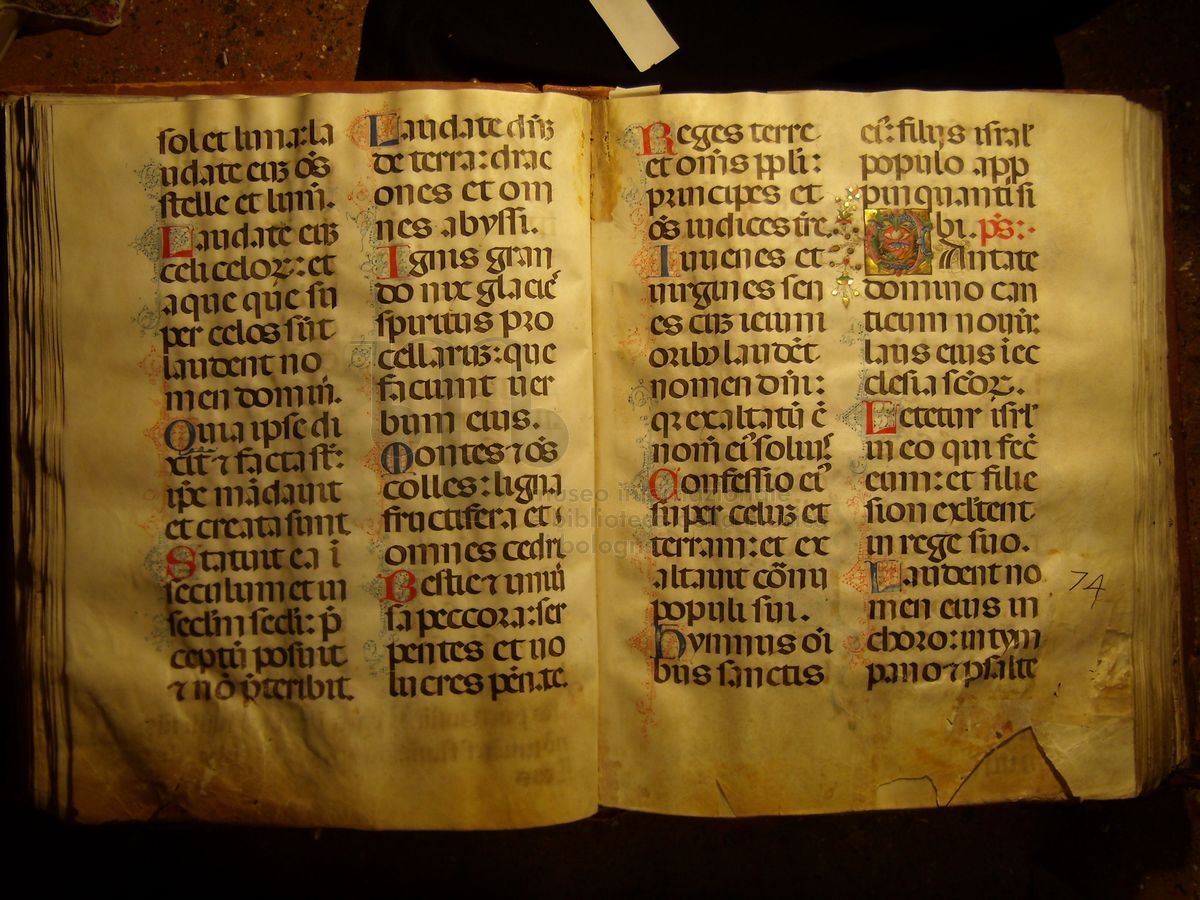 sol et luna: la
udate eū oēs
stelle et lumē.
Laudate eū
celi celoꝝ: et
aque que su
per celos sūt
laudent no
men domini.
Quia ipse di
xit ⁊ facta sūt:
ip̄e mādauit
et creata sunt
Statuit ea ī
seculum et in
sec̄lm sec̄li: p̄
ceptū posuit
⁊ nō p̄teribit.
Laudate dn̄ꝫ
de terra: drac
ones et om
nes abyssi.
Ignis gran
do nix glacie
spiritus pro
cellaruꝫ: que
faciunt uer
bum eius.
Montes ⁊ oēs
colles: ligna
fructifera et
omnes cedri
Bestie ⁊ uniū
sa peccora: ser
pentes et uo
lucres pēnate.
Reges terre
et om̄s pp̄li:
principes et
oēs iudices tr̄e.
Iuuenes et
uirgines sen
es cuꝫ ieiuni
oribꝫ laudēt
nomen dn̄i:
qꝛ exaltatū ē
nom̄ eiꝰ soliuꝰ
Confessio eiꝰ
super celuꝫ et
terram: et ex
altauit cornu
populi sui.
Hymnus oi
bus sanctis
eiꝰ: filijs isrl̄
populo app
pinquanti si
bi. ps̄:
Cantate
domino can
ticum nouū:
laus eius ī ec
clesia sc̄oꝝ.
Letetur isrl̄
in eo qui fec̄
eum: et filie
sion exl̄tent
in rege suo.
Laudent no
men eius in
choro: in tym
pano ⁊ psalte
74
museo internazionale
biblioteca
bologna